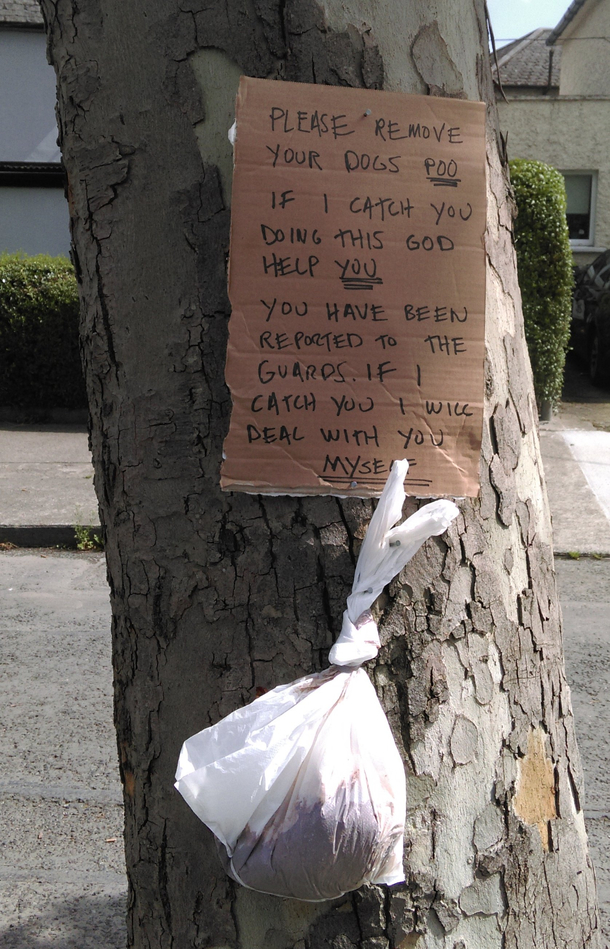 PLEASE REMOVE
YOUR DOGS POO
IF I CATCH YOU
DOING THIS GOD
HELP YOU
YOU HAVE BEEN
REPORTED TO THE
GUARDS. IF I
CATCH YOU I WILL
DEAL WITH YOU
MYSELF